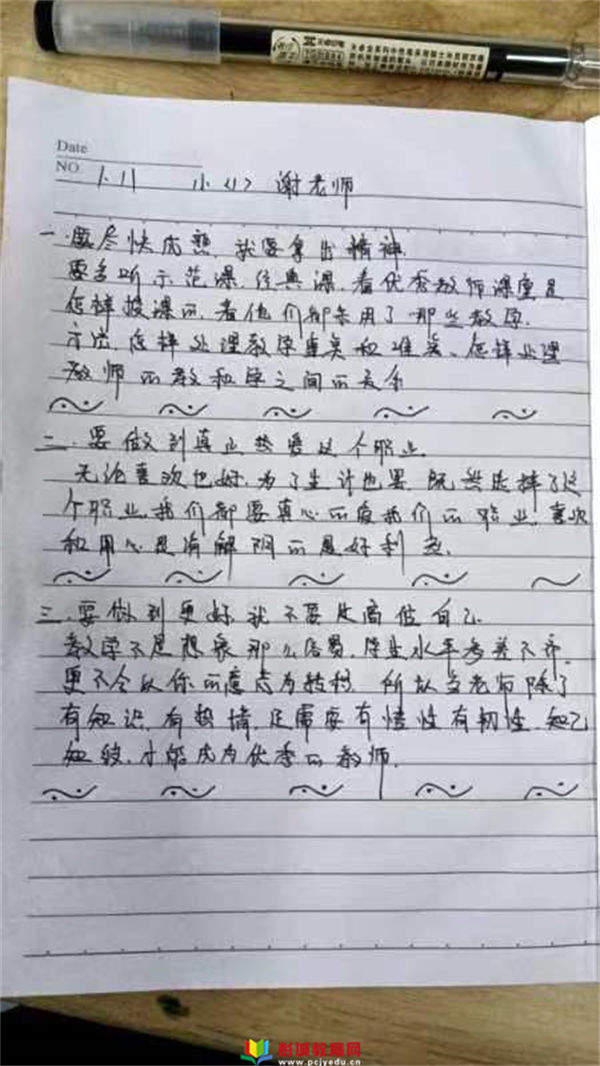 Date
NO. 1.11 小<1> 谢老师
一.要尽快成熟,就要拿出精神.
要多听示范课,经典课,看优秀教师课堂是
怎样授课的,看他们都采用了哪些教学.
方法,怎样处理教学重点和难点、怎样处理
教师的教和学之间的关系
二.要做到真正热爱这个职业.
无论喜欢也好,为了生计也罢,既然选择了这
个职业,我们都要真心的爱我们的职业,喜欢
和用心是消解阴的最好利器.
三.要做到更好就不要过高估自己.
教学不是想象那么容易,学生水平参差不齐,
更不会以你的意志为转移.所以当老师除了
有知识,有热情,还需要有悟性有韧性,知己
知彼,才能成为优秀的教师.
彭城教育网
www.pcjyedu.cn